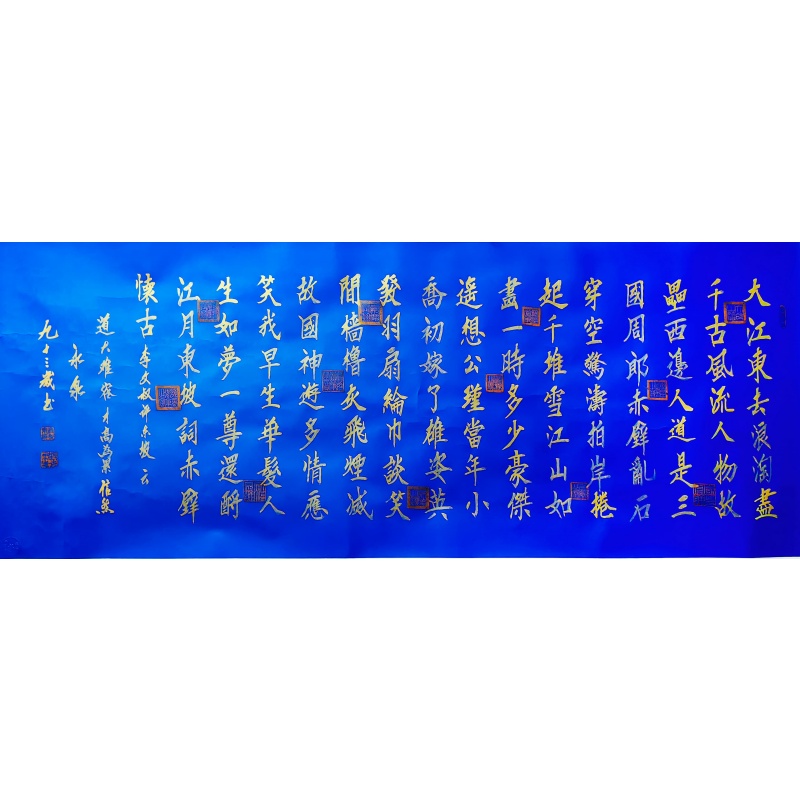 大江東去浪淘盡
千古風流人物故
壘西邊人道是三
國周郎赤壁亂石
穿空驚濤拍岸捲
起千堆雪江山如
畫一時多少豪傑
遥想公瑾當年小
喬初嫁了雄姿英
發羽扇綸巾談笑
間檣櫓灰飛煙滅
故國神遊多情應
笑我早生華髮人
生如夢一尊還酹
江月東坡詞赤壁
懷古 云
道大難容才高為累
永泉
九十三歲书